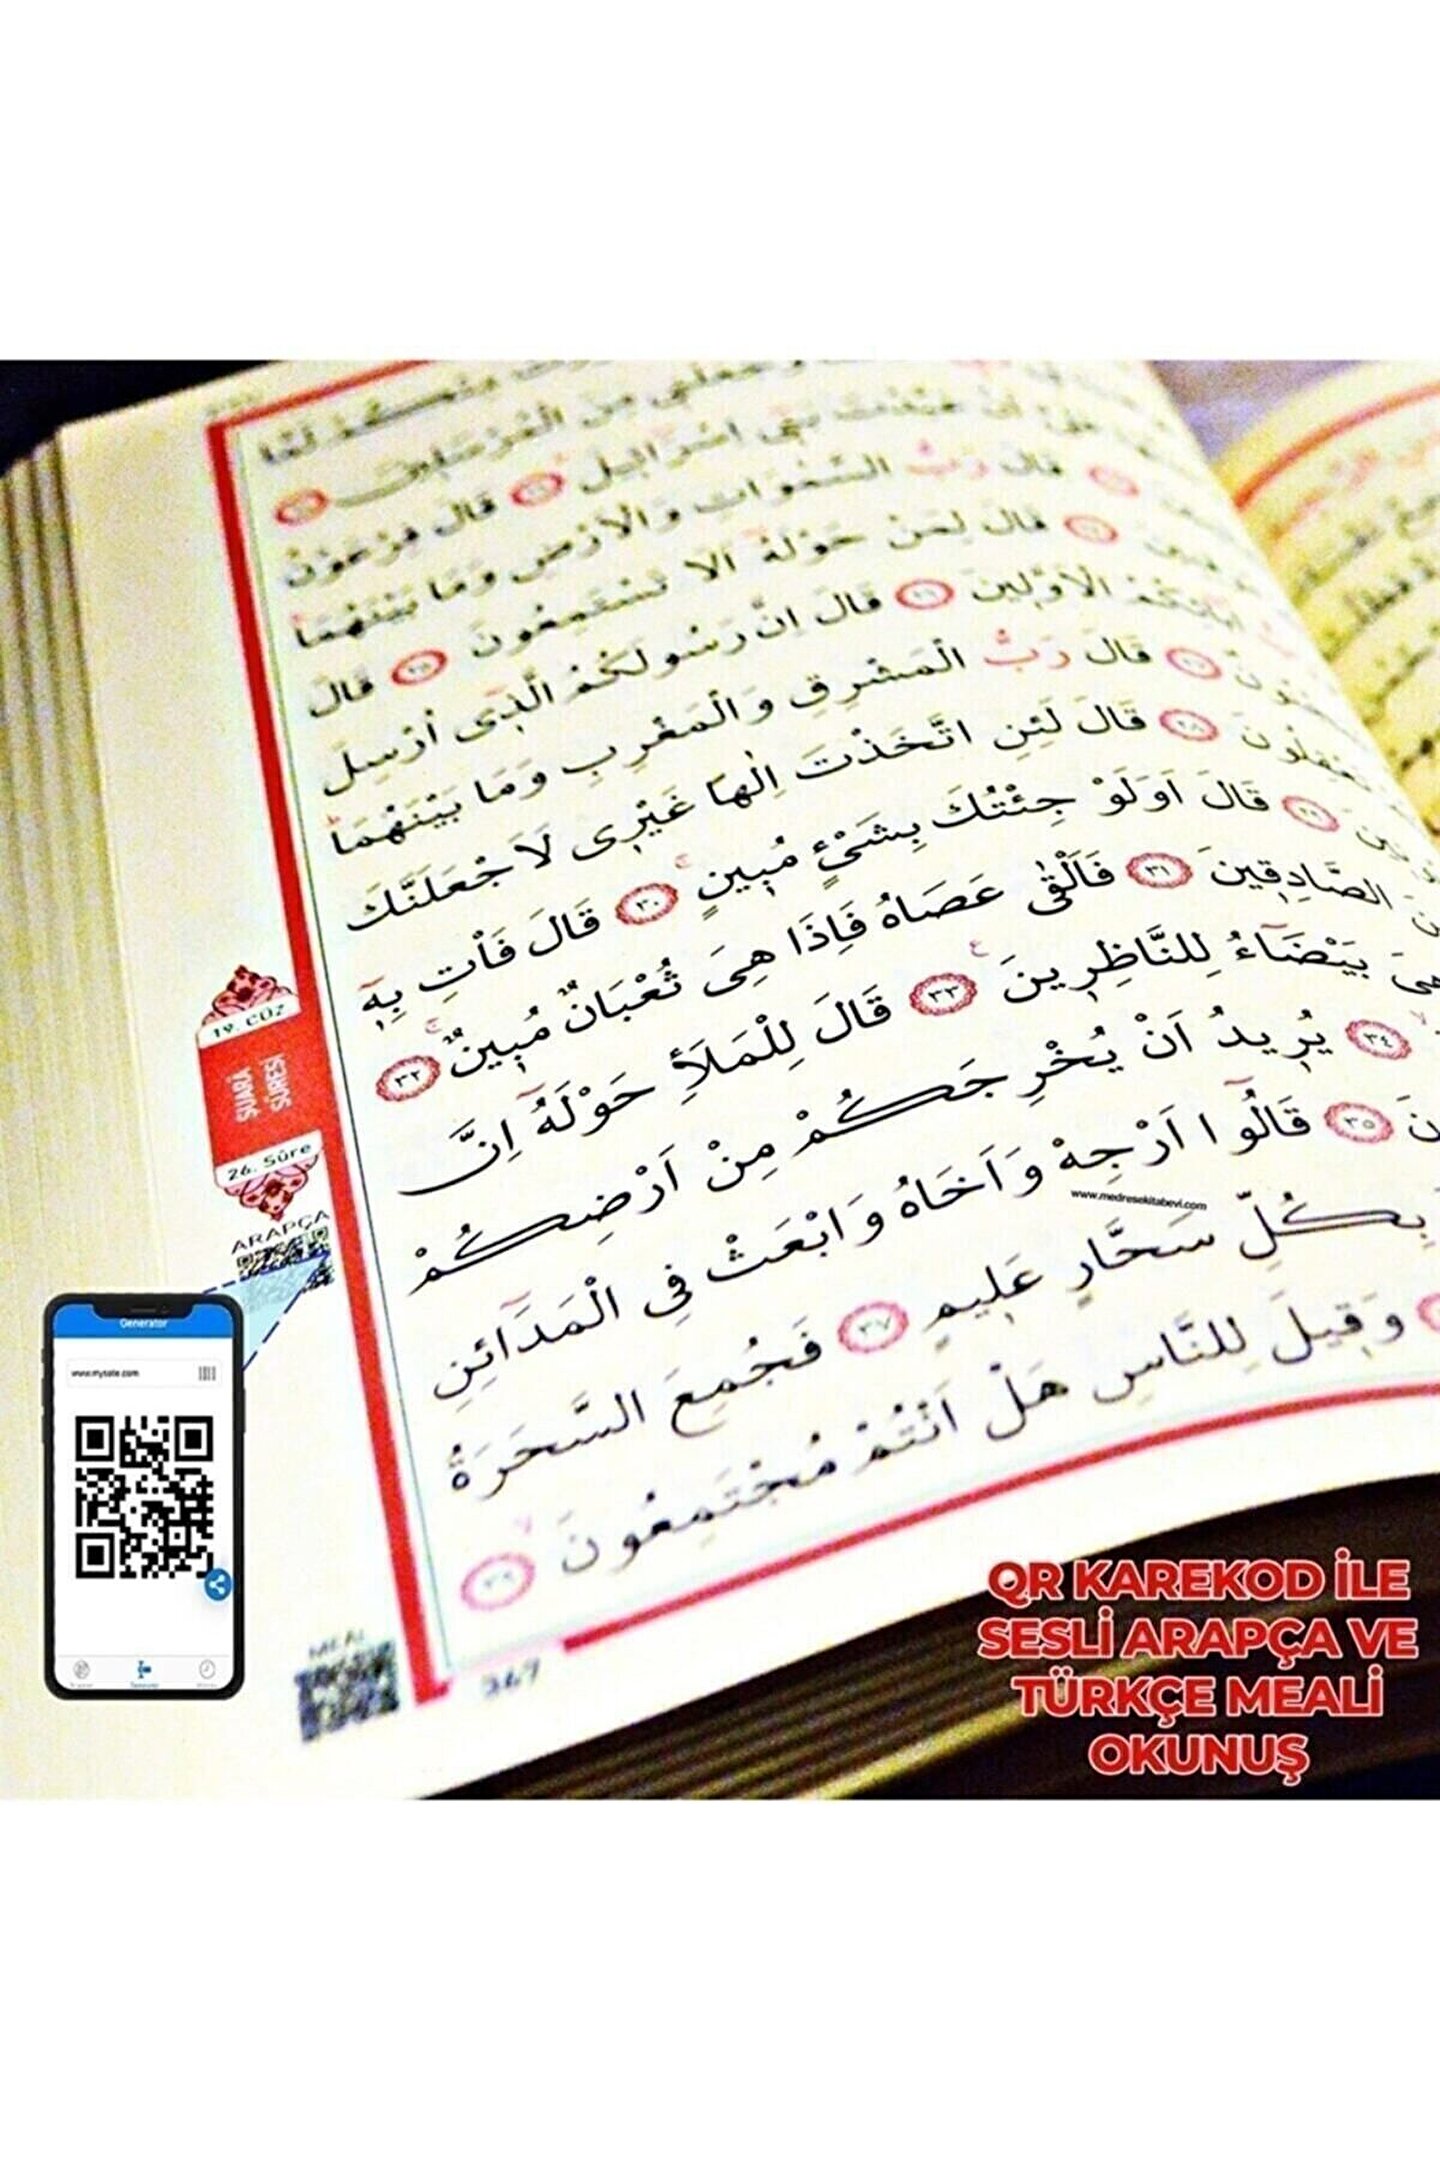 وَجَعَلَنِى مِنَ الْمُرْسَلِينَ
اَنْ عَبَّدْتَ بَنِى اِسْرَائِيلَ قَالَ فِرْعَوْنُ
قَالَ رَبُّ السَّمٰوَاتِ وَالْاَرْضِ وَمَا بَيْنَهُمَا
قَالَ لِمَنْ حَوْلَهُ اَلَا تَسْتَمِعُونَ ٢٥ قَالَ
اٰبَائِكُمُ الْاَوَّلِينَ ٢٦ قَالَ اِنَّ رَسُولَكُمُ الَّذِى اُرْسِلَ
قَالَ رَبُّ الْمَشْرِقِ وَالْمَغْرِبِ وَمَا بَيْنَهُمَا
٢٨ قَالَ لَئِنِ اتَّخَذْتَ اِلٰهًا غَيْرِى لَاَجْعَلَنَّكَ
٢٩ قَالَ اَوَلَوْ جِئْتُكَ بِشَىْءٍ مُبِينٍ ٣٠ قَالَ فَأْتِ بِهٖ
الصَّادِقِينَ ٣١ فَاَلْقٰى عَصَاهُ فَاِذَا هِىَ ثُعْبَانٌ مُبِينٌ ٣٢
هِىَ بَيْضَاءُ لِلنَّاظِرِينَ ٣٣ قَالَ لِلْمَلَأِ حَوْلَهُ اِنَّ
٣٤ يُرِيدُ اَنْ يُخْرِجَكُمْ مِنْ اَرْضِكُمْ
٣٥ قَالُوا اَرْجِهْ وَاَخَاهُ وَابْعَثْ فِى الْمَدَائِنِ
بِكُلِّ سَحَّارٍ عَلِيمٍ ٣٧ فَجُمِعَ السَّحَرَةُ
وَقِيلَ لِلنَّاسِ هَلْ اَنْتُمْ مُجْتَمِعُونَ ٣٩
19. CÜZ
ŞUARA
SURESİ
26. Sûre
ARAPÇA
www.medresekitabevi.com
Generator
www.mysite.com
MEAL
367
QR KAREKOD İLE
SESLİ ARAPÇA VE
TÜRKÇE MEALİ
OKUNUŞ